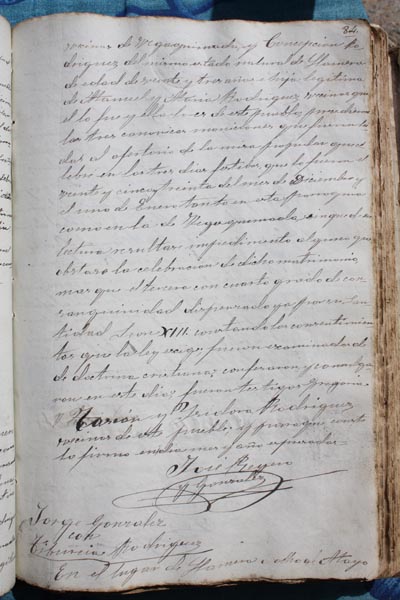 84.
vecinos de Vegaquemada, y Concepcion Ro-
driguez del mismo estado natural de Llamera
de edad de veinte y tres años e hija legitima
de Manuel y Maria Rodriguez vecinos que
el lo fue y ella lo es de este pueblo, precedieron
las tres canonicas moniciones que fueron
das al ofertorio de la misa popular que ce-
lebré en los tres dias festivos, que lo fueron el
veinte y cinco y treinta del mes de Diciembre y
el uno de Enero tanto en esta parroquia
como en la de Vegaquemada, sin que de su
lectura resultase impedimento alguno que
obstase la celebracion de dicho matrimonio
mas que el tercero con cuarto grado de con-
sanguinidad dispensado ya por su San-
tidad Leon XIII. constando los consentimien-
tos que la ley exige fueron examinados
de doctrina cristiana; confesaron y comulga-
ron en este dia; fueron testigos Gregorio
y Isidora Rodriguez
vecinos de este pueblo y para que conste
lo firmo en dicho mes y año expresados
José Reyero
y Gonzalez
Jorge Gonzalez
con
Rodriguez
En el lugar de Llamera